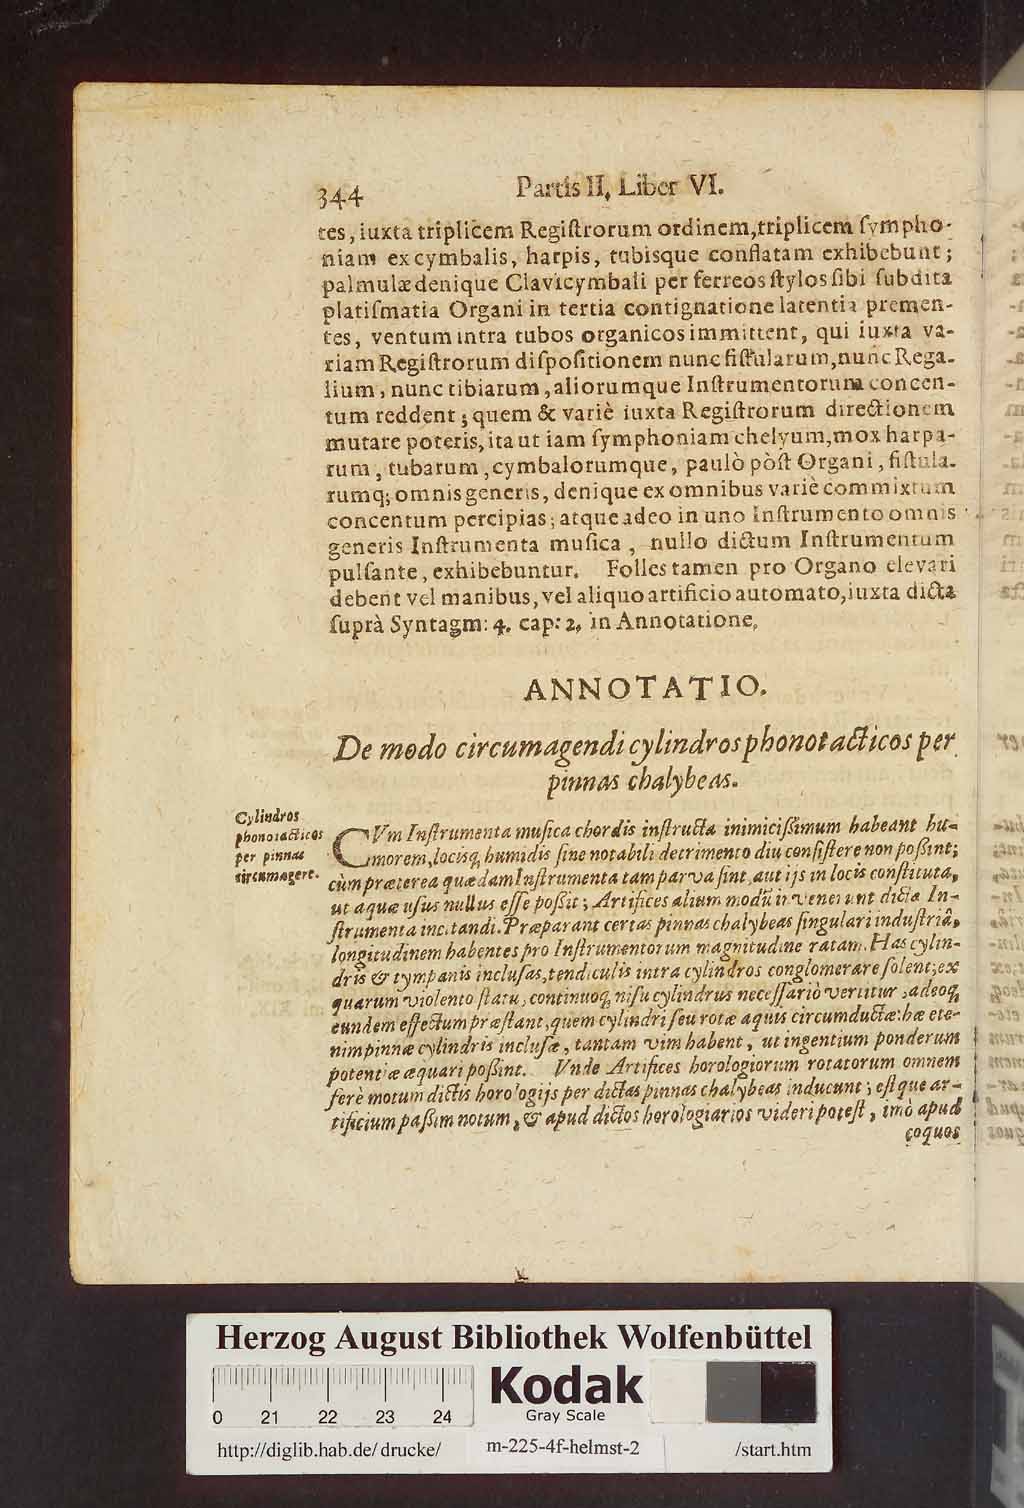 344
Partis II. Liber VI.
tes, iuxta triplicem Regiſtrorum ordinem, triplicem ſympho-
niam ex cymbalis, harpis, tubisque conflatam exhibebunt;
palmulæ denique Clavicymbali per ferreos ſtylos ſibi ſubdita
platiſmatia Organi in tertia contignatione latentia premen-
tes, ventum intra tubos organicos immittent, qui iuxta va-
riam Regiſtrorum diſpoſitionem nunc fiſtularum, nunc Rega-
lium, nunc tibiarum, aliorumque Inſtrumentorum concen-
tum reddent; quem & variè iuxta Regiſtrorum directionem
mutare poteris, ita ut iam ſymphoniam chelyum, mox harpa-
rum, tubarum, cymbalorumque, paulò pòſt Organi, fiſtula-
rumq; omnis generis, denique ex omnibus variè commixtum
concentum percipias; atque adeo in uno Inſtrumento omnis
generis Inſtrumenta muſica, nullo dictum Inſtrumentum
pulſante, exhibebuntur. Folles tamen pro Organo elevari
debent vel manibus, vel aliquo artificio automato, iuxta dicta
ſuprà Syntagm: 4. cap: 2. in Annotatione.
ANNOTATIO.
De modo circumagendi cylindros phonotacticos per
pinnas chalybeas.
Cylindros
phonotacticos
per pinnas
circumagere.
CVm Inſtrumenta muſica chordis inſtructa inimiciſſimum habeant hu-
morem, locisq; humidis ſine notabili detrimento diu conſiſtere non poßint;
cùm præterea quædam Inſtrumenta tam parva ſint, aut ijs in locis conſtituta,
ut aquæ uſus nullus eſſe poßit; Artifices alium modũ invenerunt dicta In-
ſtrumenta incitandi. Præparant certas pinnas chalybeas ſingulari induſtriâ,
longitudinem habentes pro Inſtrumentorum magnitudine ratam. Has cylin-
dris & tympanis incluſas, tendiculis intra cylindros conglomerare ſolent; ex
quarum violento ſtatu, continuoq; niſu cylindrus neceſſariò vertitur, adeoq;
eundem effectum præſtant, quem cylindri ſeu rotæ aquis circumductæ: hæ ete-
nim pinnæ cylindris incluſæ, tantam vim habent, ut ingentium ponderum
potentiæ æquari poßint. Vnde Artifices horologiorum rotatorum omnem
ferè motum dictis horologijs per dictas pinnas chalybeas inducunt; eſtque ar-
tificium paßim notum, & apud dictos horologiarios videri poteſt, imò apud
coquos
Herzog August Bibliothek Wolfenbüttel
0 21 22 23 24
Kodak
Gray Scale
http://diglib.hab.de/drucke/ m-225-4f-helmst-2 /start.htm